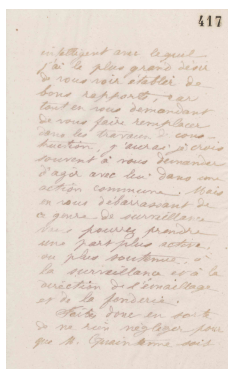 417
intelligent avec lequel
j'ai le plus grand désir
de vous voir établir de
bons rapports, car
tout en vous demandant
de vous faire remplacer
dans les travaux de cons-
truction, j'aurai je crois
souvent à vous demander
d'agir avec lui dans une
action commune. Mais
en vous débarassant de
ce genre de surveillance
vous pourrez prendre
une part plus active
ou plus soutenue à
la surveillance et à la
direction de l'émaillage
et de la fonderie.
Faites donc en sorte
de ne rien négliger pour
que M. soit